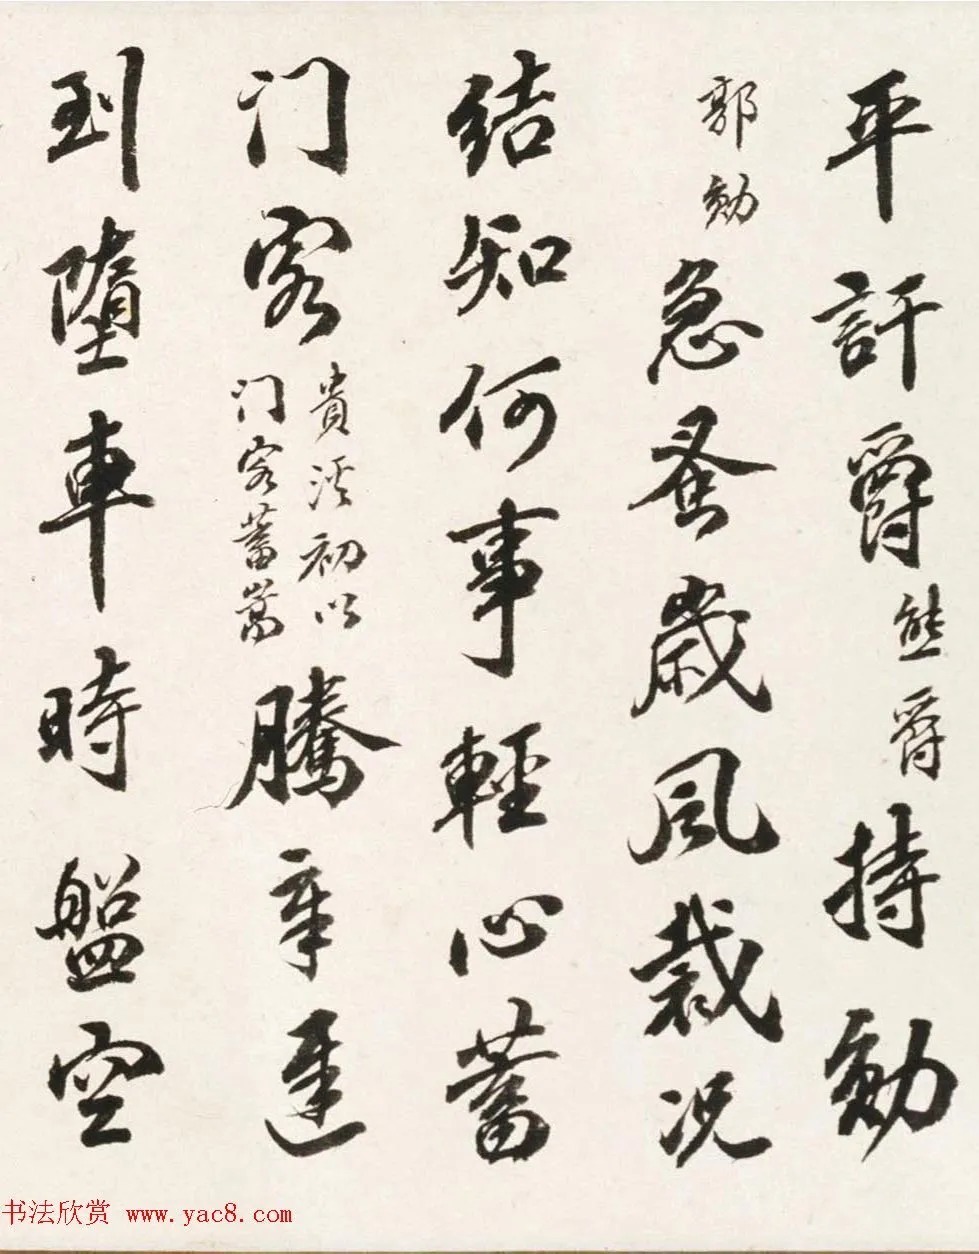 平訐爵熊爵持勛
郭勛急蚤歲風裁况
結知何事輕心蓄
门客貴溪初以
门客蓄嵩騰章逮
到墮車時盤空
书法欣赏 www.yac8.com